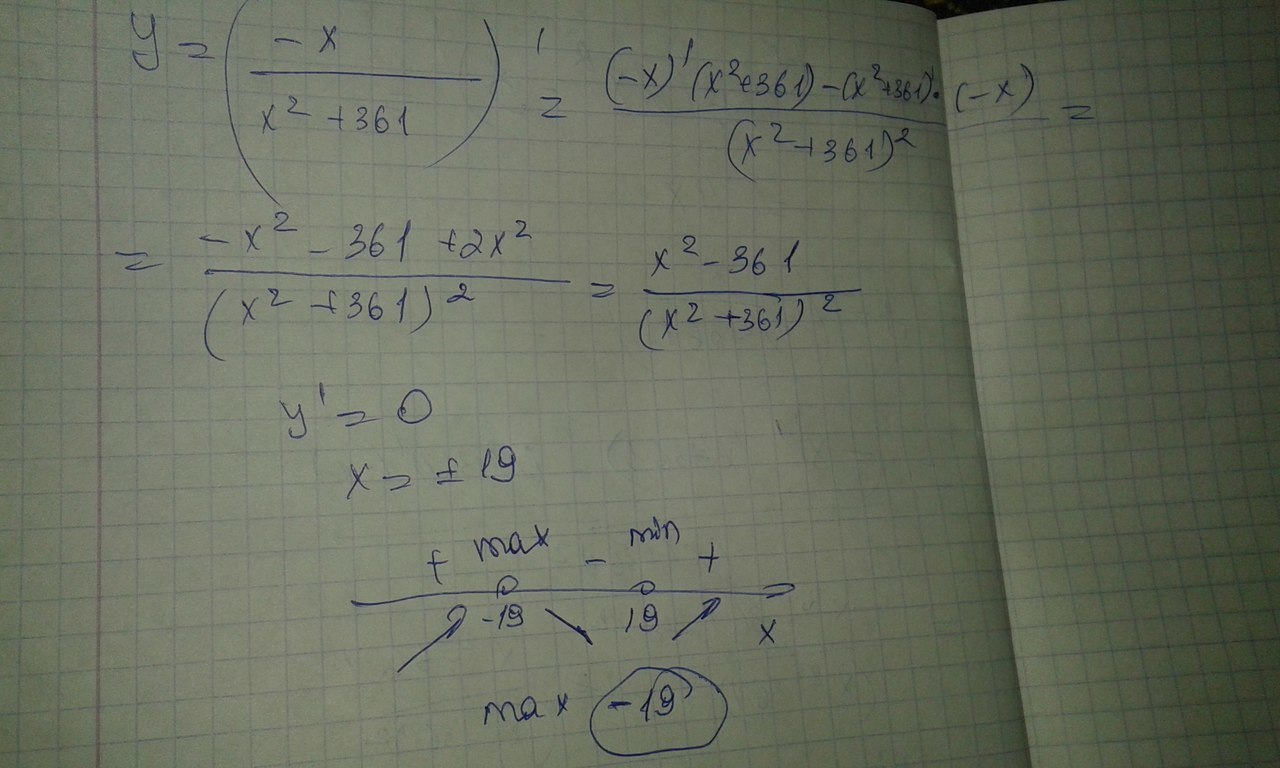 y = ( -x / x² + 361 )' = (-x)' (x² + 361) - (x² + 361)' · (-x) / (x² + 361)² =
= -x² - 361 + 2x² / (x² + 361)² = x² - 361 / (x² + 361)²
y' = 0
x = ± 19
+ max - min +
-19 19 x
max -19